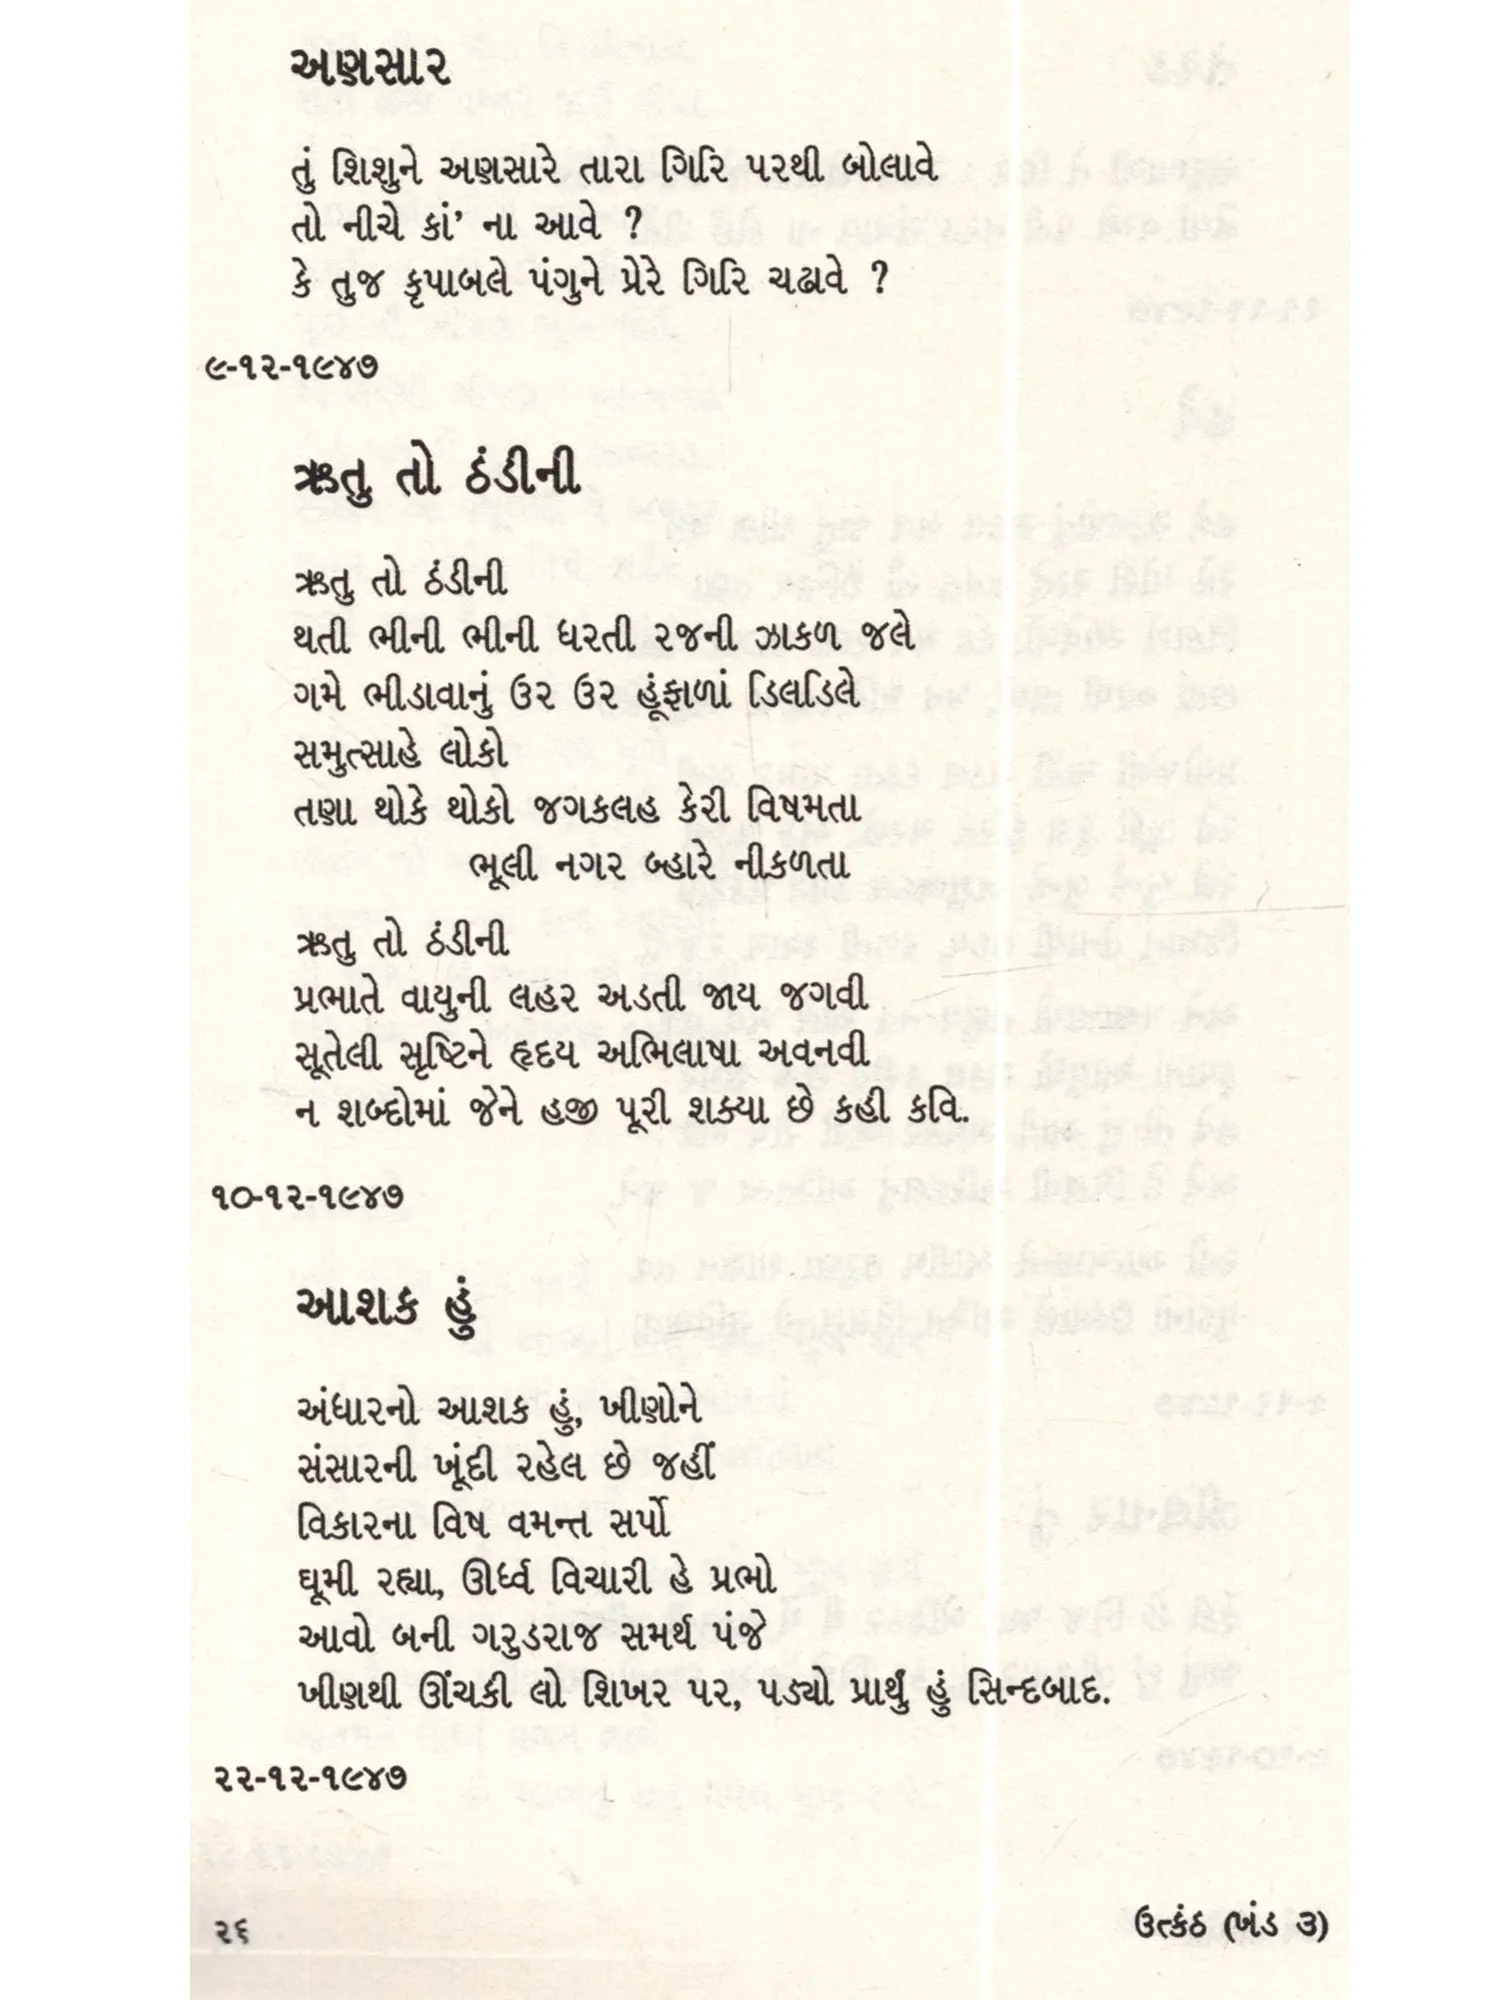 અણસાર
તું શિશુને અણસારે તારા ગિરિ પરથી બોલાવે
તો નીચે કાં' ના આવે ?
કે તુજ કૃપાબલે પંગુને પ્રેરે ગિરિ ચઢાવે ?
૯-૧૨-૧૯૪૭
ઋતુ તો ઠંડીની
ઋતુ તો ઠંડીની
થતી ભીની ભીની ધરતી રજની ઝાકળ જલે
ગમે ભીડાવાનું ઉર ઉર હૂંફાળાં ડિલડિલે
સમુત્સાહે લોકો
તણા થોકે થોકો જગકલહ કેરી વિષમતા
ભૂલી નગર બ્હારે નીકળતા
ઋતુ તો ઠંડીની
પ્રભાતે વાયુની લહર અડતી જાય જગવી
સૂતેલી સૃષ્ટિને હૃદય અભિલાષા અવનવી
ન શબ્દોમાં જેને હજી પૂરી શક્યા છે કહી કવિ.
૧૦-૧૨-૧૯૪૭
આશક હું
અંધારનો આશક હું, ખીણોને
સંસારની ખૂંદી રહેલ છે જહીં
વિકારના વિષ વમન્ત સર્પો
ઘૂમી રહ્યા, ઊર્ધ્વ વિચારી હે પ્રભો
આવો બની ગરુડરાજ સમર્થ પંજે
ખીણથી ઊંચકી લો શિખર પર, પડ્યો પ્રાર્થું હું સિન્દબાદ.
૨૨-૧૨-૧૯૪૭
૨૬
ઉત્કંઠ (ખંડ ૩)